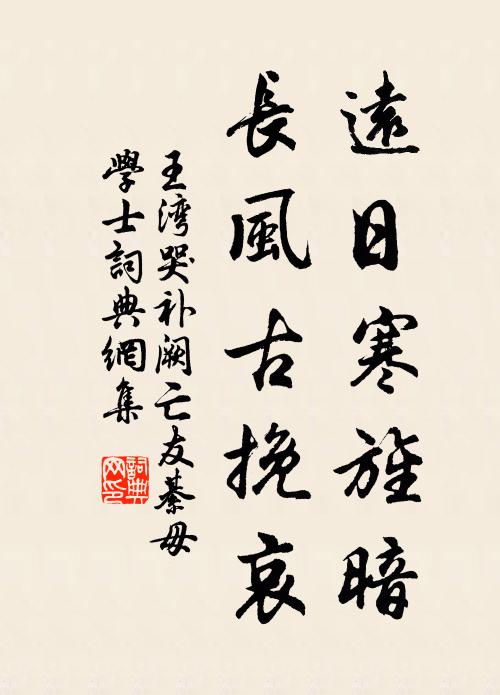 遠日寒旌暗
長風古挽哀
王湾哭补阙亡友綦毋
學士詞典網集
詞典
网印